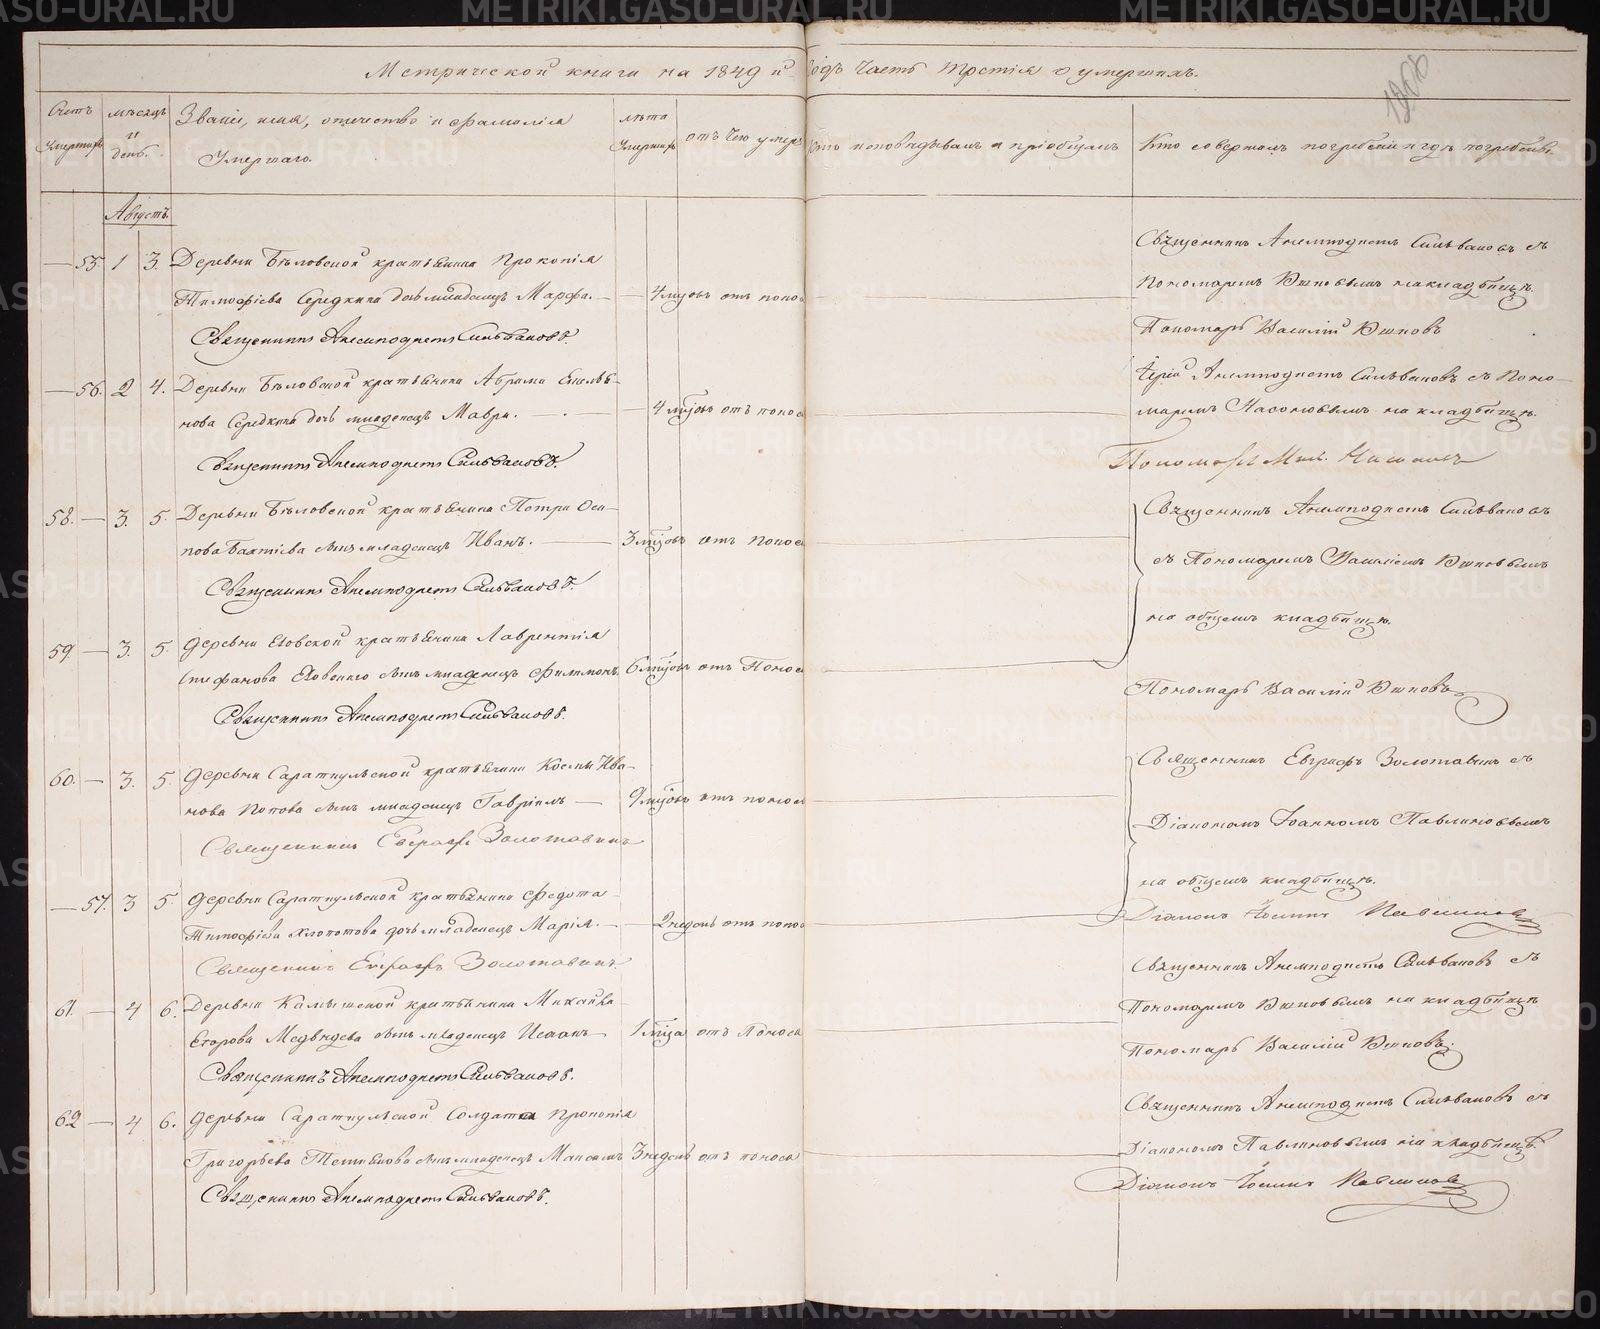 Метрической книги на 1849 й годъ Часть третiя о умершихъ.
Счетъ умершихъ
мѣсяцъ и день.
Званiе, имя, отчество и фамилiя
Умершаго.
лѣта умершихъ
отъ чего умеръ
Кто исповѣдывалъ и прiобщалъ
Кто совершалъ погребенiе и гдѣ погребены
Августъ.
55 1 3. Деревни Бѣловской крестьянина Прокопiя
Тимофѣева Середкина дочь младенецъ Марфа. 4 мцовъ отъ поноса
Священникъ Анемподистъ Сильвановъ.
Священникъ Анемподистъ Сильвановъ съ
Пономаремъ Юшковымъ на кладбищѣ.
Пономарь Василiй Юшковъ
56. 2 4. Деревни Бѣловской крестьянина Абрама Емелья-
нова Середкина дочь младенецъ Мавра. 4 мцовъ отъ поноса
Священникъ Анемподистъ Сильвановъ.
Iерей Анемподистъ Сильвановъ съ Поно-
маремъ Насоновымъ на кладбищѣ.
Пономарь Насоновъ
58. 3. 5. Деревни Бѣловской крестьянина Петра Оси-
пова сынъ младенецъ Иванъ. 3 мцовъ отъ поноса
Священникъ Анемподистъ Сильвановъ.
Священникъ Анемподистъ Сильвановъ
съ Пономаремъ Василiемъ Юшковымъ
на общемъ кладбищѣ.
59 3. 5. Деревни крестьянина Лаврентiя
сынъ младенецъ Филимонъ. 6 мцовъ отъ Поноса
Священникъ Анемподистъ Сильвановъ.
Пономарь Василiй Юшковъ
60. 3. 5. Деревни Саратпульской крестьянина Космы Ива-
нова Попова сынъ младенецъ Гаврiилъ 9 мцовъ отъ поноса
Священникъ Евграфъ Золотавинъ
Священникъ Евграфъ Золотавинъ съ
Дiакономъ Iоанномъ Павлиновымъ
на общемъ кладбищѣ.
57. 3 5. Деревни Саратпульской крестьянина Федота
Тимофѣева Хлопотова дочь младенецъ Марiя. 2 недѣль отъ поноса
Священникъ Евграфъ Золотавинъ
Дiаконъ Iоаннъ Павлиновъ
61. 4 6. Деревни Камышской крестьянина Михаила
Егорова Медвѣдева сынъ младенецъ Исаакъ 1 мца отъ поноса
Священникъ Анемподистъ Сильвановъ.
Священникъ Анемподистъ Сильвановъ съ
Пономаремъ Юшковымъ на кладбищѣ
Пономарь Василiй Юшковъ.
62 4 6. Деревни Саратпульской Солдата Прокопiя
Григорьева сынъ младенецъ Максимъ 3 недѣль отъ поноса
Священникъ Анемподистъ Сильвановъ.
Священникъ Анемподистъ Сильвановъ съ
Дiакономъ Павлиновымъ на кладбищѣ
Дiаконъ Iоаннъ Павлиновъ
METRIKI.GASO-URAL.RU